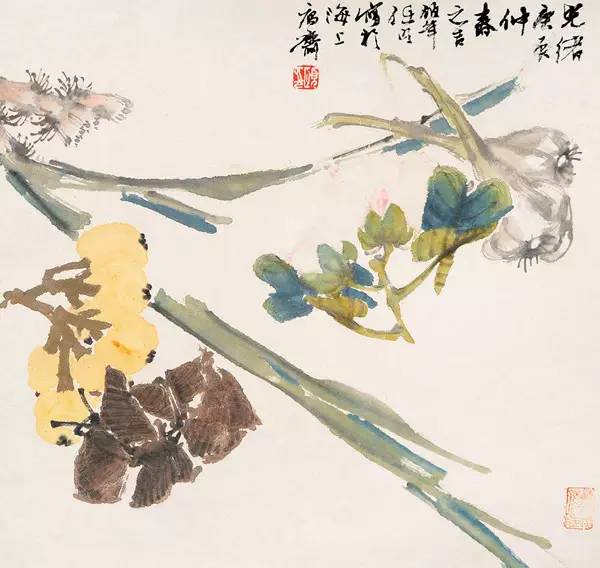 光緒
庚辰
仲
春
之吉
伯年
任頤
寫於
海上
寓齋